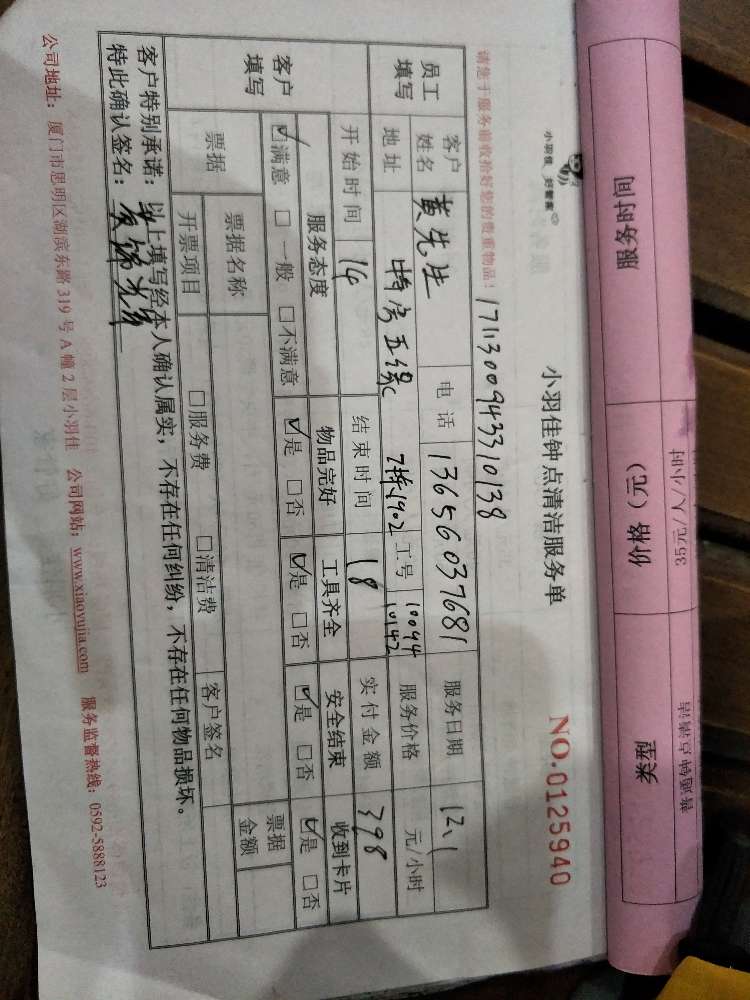 服务时间 价格（元） 类型
35元/人/小时 普通钟点清洁
小羽佳 好管家
小羽佳钟点清洁服务单 NO.0125940
请您于服务前收拾好您的贵重物品！ 1711300943310138
员工填写 客户姓名 黄先生 电话 13656037681 服务日期 12.1
地址 特房五缘 7梯1902 工号 10094 10142 服务价格 元/小时
开始时间 14 结束时间 18 实付金额 398
客户填写 服务态度 物品完好 工具齐全 安全结束 收到卡片
☑满意 □一般 □不满意 ☑是 □否 ☑是 □否 ☑是 □否 ☑是 □否
票据 票据名称 票据金额
开票项目 □服务费 □清洁费 客户签名
客户特别承诺：以上填写经本人确认属实，不存在任何纠纷，不存在任何物品损坏。
特此确认签名：
公司地址：厦门市思明区湖滨东路319号A幢2层小羽佳 公司网站：www.xiaoyujia.com 服务监督热线：0592-5888123